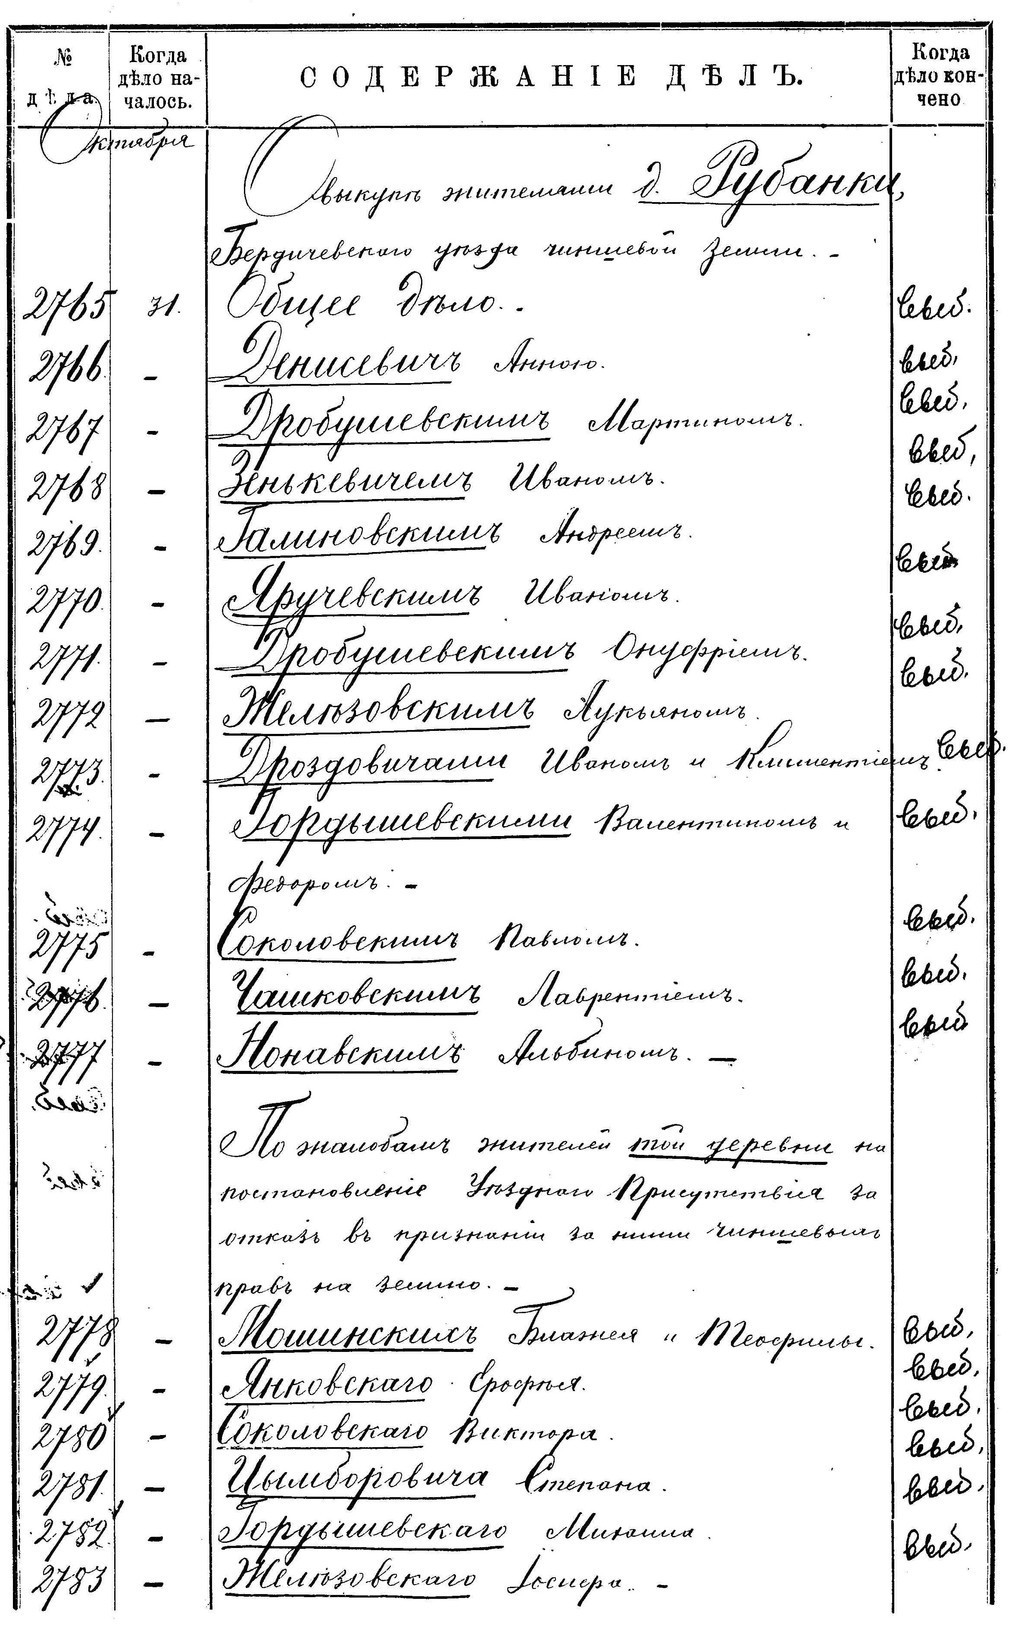 № дѣла.
Когда дѣло началось.
СОДЕРЖАНІЕ ДѢЛЪ.
Когда дѣло кончено
Октября
О выкупѣ жителями д. Рубанки,
Бердичевскаго уѣзда чиншевой земли. -
2765 31. Общее дѣло. -
2766 - Денисевичъ Анною.
2767 - Дробушевскимъ Мартиномъ.
2768 - Зенькевичемъ Иваномъ.
2769. - Галиновскимъ Андреемъ.
2770. - Яручевскимъ Иваномъ.
2771. - Дробушевскимъ Онуфріемъ.
2772 - Желѣзовскимъ Лукьяномъ.
2773. - Дроздовичами Иваномъ и Климентіемъ
2774. - Гордышевскими Валентиномъ и
Федоромъ. -
2775 - Соколовскимъ Павломъ.
2776. - Чашковскимъ Лаврентіемъ.
2777 - Нонавскимъ Альбиномъ. -
По жалобамъ жителей той деревни на
постановленіе Уѣзднаго Присутствія за
отказъ въ признаніи за ними чиншевыхъ
правъ на землю. -
2778 - Мошинскихъ Блажея и Теофилы.
2779. - Янковскаго Ерофѣя.
2780 - Соколовскаго Виктора.
2781. - Цымборовича Степана.
2782. - Гордышевскаго Михаила.
2783 - Желѣзовскаго Іосифа. -